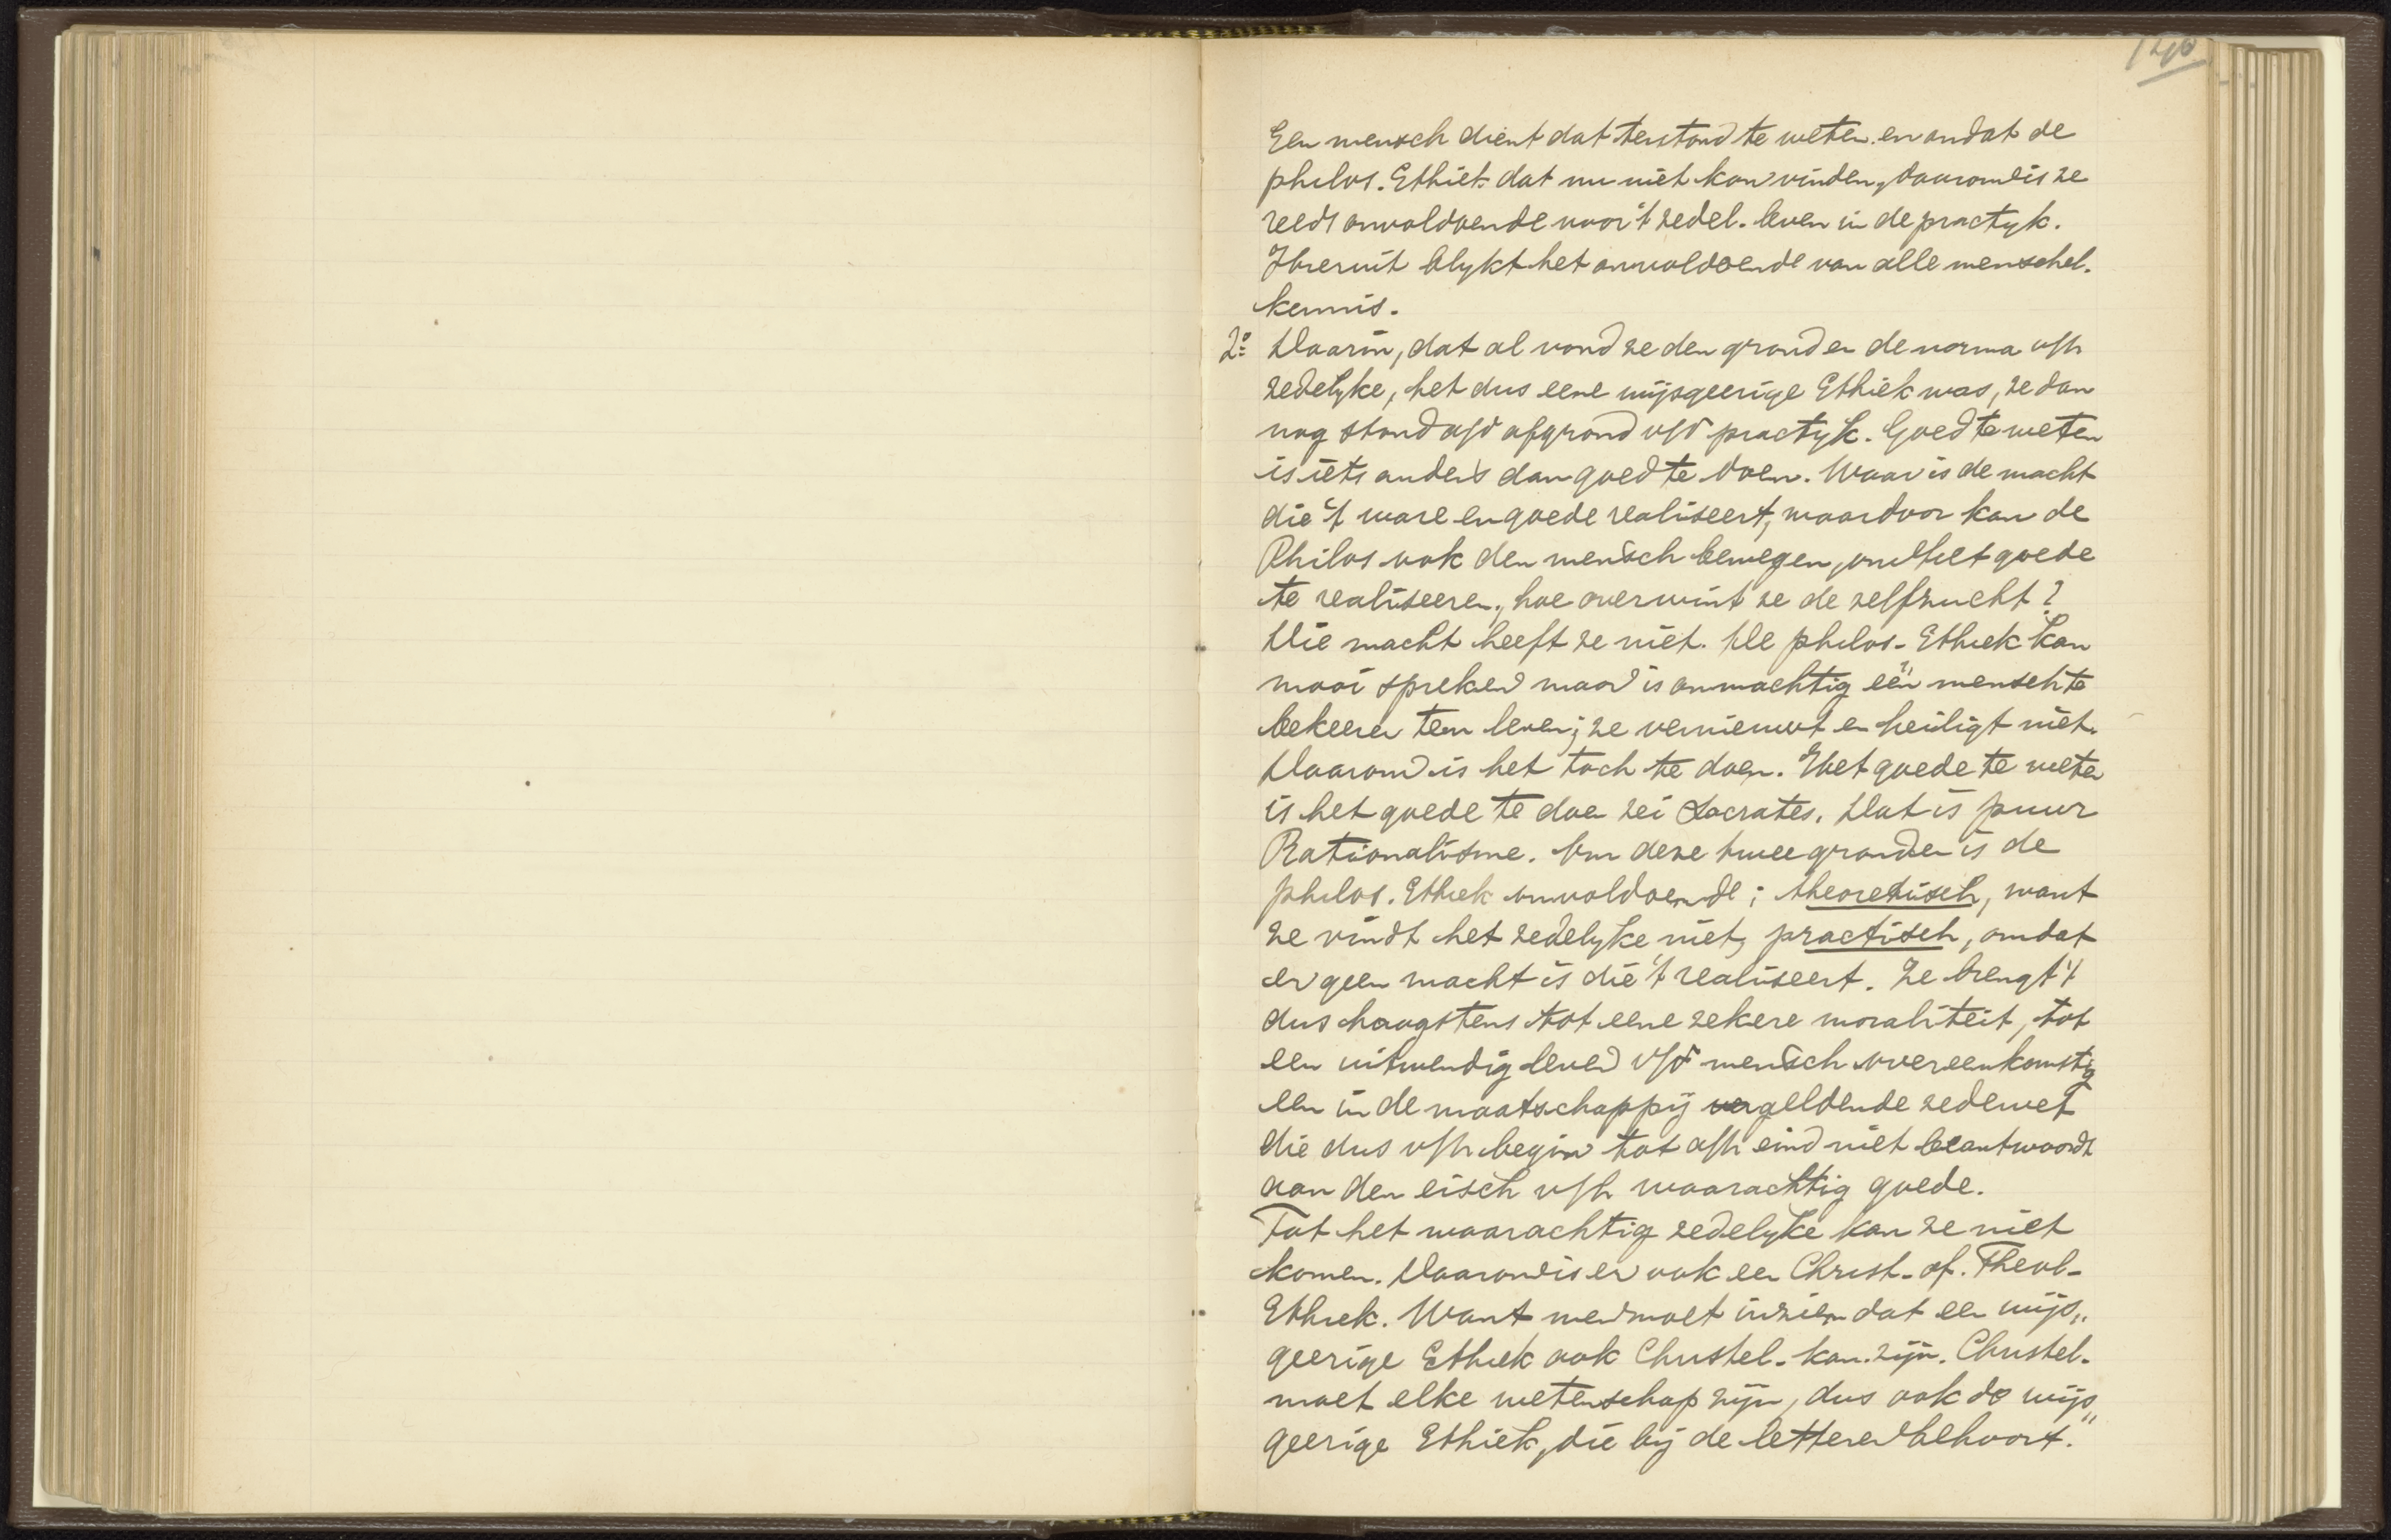 126
Een mensch dient dat terstond te weten en omdat de
philos. Ethiek dat nu niet kan vinden, daarom is ze
reeds onvoldoende voor 't zedel. leven in de practyk.
Hieruit blykt het onvoldoende van alle menschel.
kennis.
2º Daarin, dat al vond ze den grond en de norma v/h
zedelyke, het dus eene wijsgeerige Ethiek was, ze dan
nog stond a/d afgrond v/d practyk. Goed te weten
is iets anders dan goed te doen. Waar is de macht
die 't ware en goede realiseert, waardoor kan de
Philos ook den mensch bewegen, om het goede
te realiseeren, hoe overwint ze de zelfzucht?
Die macht heeft ze niet. De philos. Ethiek kan
mooi spreken maar is onmachtig één mensch te
bekeeren ten leven; ze vernieuwt en heiligt niet.
Daarom is het toch te doen. Het goede te weten
is het goede te doen zei Socrates. Dat is puur
Rationalisme. Om deze twee gronden is de
philos. Ethiek onvoldoende; theoretisch, want
ze vindt het zedelyke niet, practisch, omdat
er geen macht is die 't realiseert. Ze brengt 't
dus hoogstens tot eene zekere moraliteit, tot
een uitwendig leven v/d mensch overeenkomstig
een in de maatschappij vergeldende zedewet
die dus v/h begin tot a/h eind niet beantwoordt
aan den eisch v/h waarachtig goede.
Tot het waarachtig zedelyke kan ze niet
komen. Daarom is er ook een Christ. of. Theol-
Ethiek. Want men moet inzien dat een wijs„
geerige Ethiek ook Christel. kan zijn. Christel.
moet elke wetenschap zijn, dus ook de wijs„
geerige Ethiek, die bij de letteren behoort.